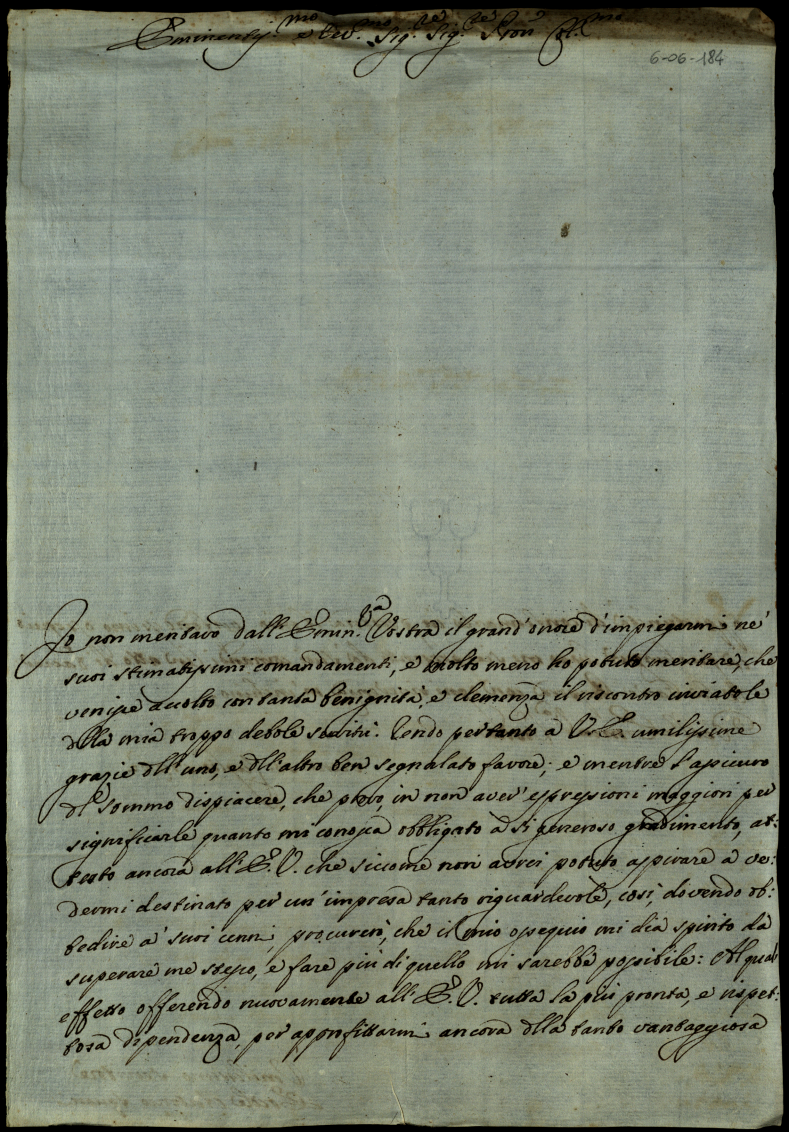 Eminentiss.mo e Rev.mo Sig.re Sig.re Pron Col.mo
6-06-184
Io non meritavo dall'Emin.za Vostra il grand'onore d'impiegarmi ne'
suoi stimatissimi comandamenti, e molto meno ho potuto meritare, che
venisse accolto con tanta benignità, e clemenza il riscontro inviatole
della mia troppo debole servitù. Rendo pertanto à V.E. umilissime
grazie dell'uno, e dell'altro ben segnalato favore; e mentre l'assicuro
del sommo dispiacere, che provo in non aver' espressioni maggiori per
significarle quanto mi conosca obbligato à sì generoso gradimento, at:
testo ancora all'E.V. che siccome non avrei potuto aspirare à ve:
dermi destinato per un'impresa tanto riguardevole, così, dovendo ob:
bedire a' suoi cenni, procurerò, che il mio ossequio mi dia spirito da
superare me stesso, e fare più di quello mi sarebbe possibile: Al qual
effetto offerendo nuovamente all'E.V. tutta la più pronta, e rispet:
tosa dipendenza, per approfittarmi ancora della tanto vantaggiosa